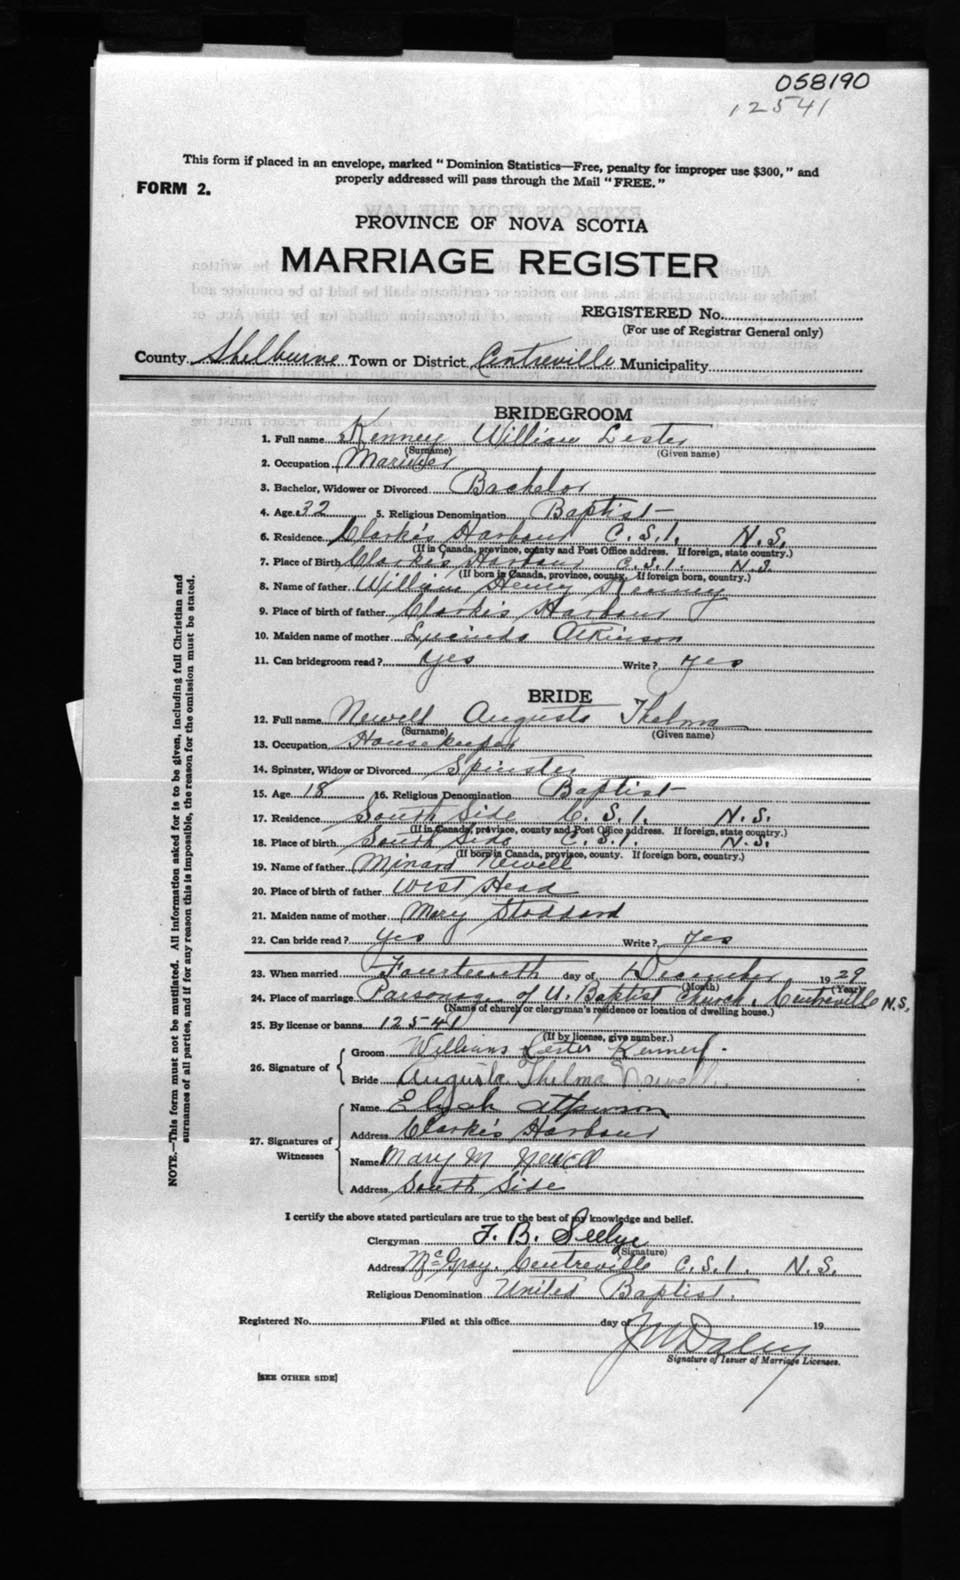 058190
12541
This form if placed in an envelope, marked "Dominion Statistics—Free, penalty for improper use $300," and
properly addressed will pass through the Mail "FREE."
FORM 2.
PROVINCE OF NOVA SCOTIA
MARRIAGE REGISTER
REGISTERED No.
(For use of Registrar General only)
County Shelburne Town or District Centreville Municipality
BRIDEGROOM
1. Full name Kenney William Lester
(Surname) (Given name)
2. Occupation Mariner
3. Bachelor, Widower or Divorced Bachelor
4. Age 32 5. Religious Denomination Baptist
6. Residence Clark's Harbour C.S.I. N.S.
(If in Canada, province, county and Post Office address. If foreign, state country.)
7. Place of Birth Clark's Harbour C.S.I. N.S.
(If born in Canada, province, county. If foreign born, country.)
8. Name of father William Henry Kenney
9. Place of birth of father Clark's Harbour
10. Maiden name of mother Lucinda Atkinson
11. Can bridegroom read? yes Write? yes
BRIDE
12. Full name Newell Augusta Thelma
(Surname) (Given name)
13. Occupation Housekeeper
14. Spinster, Widow or Divorced Spinster
15. Age 18 16. Religious Denomination Baptist
17. Residence South Side C.S.I. N.S.
(If in Canada, province, county and Post Office address. If foreign, state country.)
18. Place of birth South Side C.S.I. N.S.
(If born in Canada, province, county. If foreign born, country.)
19. Name of father Minard Newell
20. Place of birth of father West Head
21. Maiden name of mother Mary Stoddard
22. Can bride read? yes Write? yes
23. When married Fourteenth day of December 1929
(Month) (Year)
24. Place of marriage Parsonage of U. Baptist Church, Centreville N.S.
(Name of church or clergyman's residence or location of dwelling house.)
25. By license or banns 12541
(If by license, give number.)
26. Signature of
Groom William Lester Kenney.
Bride Augusta Thelma Newell.
27. Signatures of Witnesses
Name Elijah Atkinson
Address Clark's Harbour
Name Mary M Newell
Address South Side
I certify the above stated particulars are true to the best of my knowledge and belief.
Clergyman F. B. Seelye
(Signature)
Address McGray, Centreville C.S.I. N.S.
Religious Denomination United Baptist.
Registered No. Filed at this office day of 19
Signature of Issuer of Marriage Licenses.
[SEE OTHER SIDE]
NOTE.—This form must not be mutilated. All information asked for is to be given, including full Christian and
surnames of all parties, and if for any reason this is impossible, the reason for the omission must be stated.